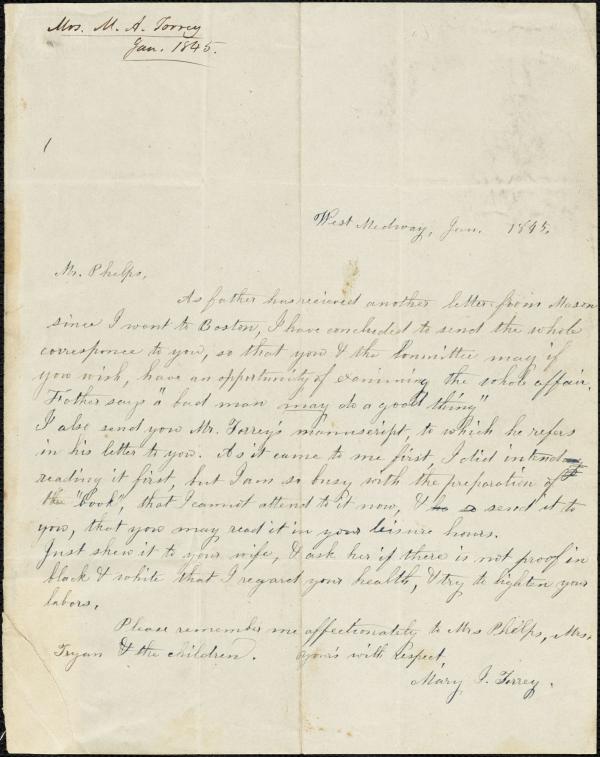 Mrs. M. A. Torrey
Jan. 1845.
West Medway, Jan. 1845.
Mr. Phelps,
As father has recieved another letter from Mason
since I went to Boston, I have concluded to send the whole
corresponce to you, so that you & the Committee may if
you wish, have an opportunity of examining the whole affair.
Father says "a bad man may do a good thing"
I also send you Mr. Torrey's manuscript, to which he refers
in his letter to you. As it came to me first, I did intend
reading it first, but I am so busy with the preparation of
the "book", that I cannot attend to it now, & send it to
you, that you may read it in your leisure hours.
Just shew it to your wife, & ask her if there is not proof in
black & white that I regard your health, & try to lighten your
labors.
Please remember me affectionately to Mrs Phelps, Mrs.
Tryan & the children. yours with Respect,
Mary I. Torrey.